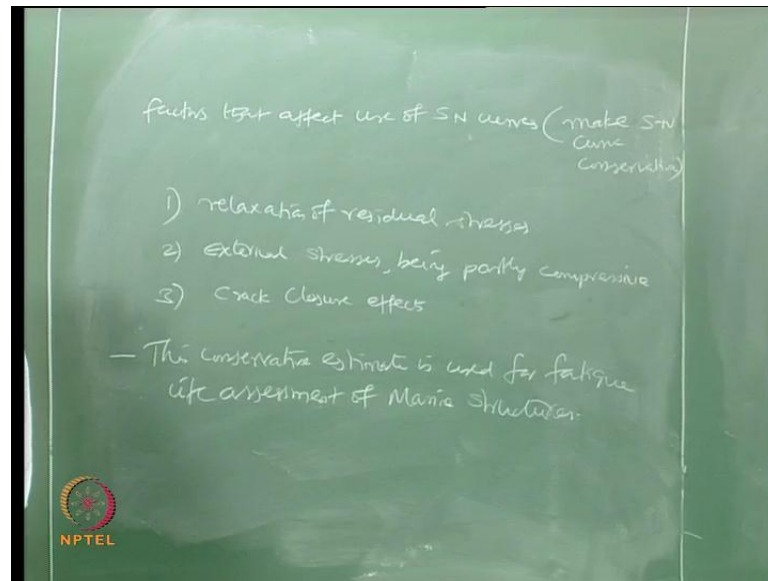 factors that affect use of SN curves (make S-N
curve
conservative)
1) relaxation of residual stresses
2) external stresses, being partly compressive
3) Crack Closure effect
— This conservative estimate is used for fatigue
life assessment of Marine Structures.
NPTEL